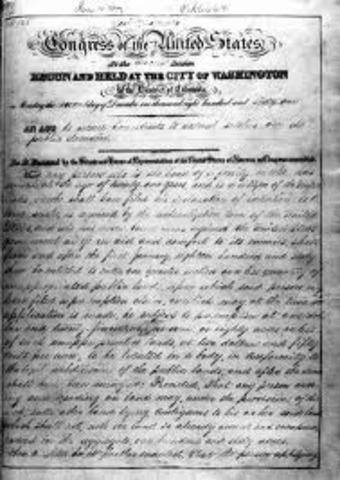 Congress of the United States,
At the second Session
BEGUN AND HELD AT THE CITY OF WASHINGTON
in the District of Columbia
on Monday the second day of December one thousand eight hundred and sixty one
AN ACT to secure homesteads to actual settlers on the
public domain.
Be it Enacted by the Senate and House of Representatives of the United States of America in Congress assembled,
That any person who is the head of a family, or who has
arrived at the age of twenty one years, and is a citizen of the United
States, or who shall have filed his declaration of intention to be-
come such, as required by the naturalization laws of the United
States, and who has never borne arms against the United States
government or given aid and comfort to its enemies, shall
from and after the first January, eighteen hundred and sixty
three be entitled to enter one quarter section or a less quantity of
unappropriated public lands, upon which said person may
have filed a preemption claim, or which may, at the time the
application is made, be subject to preemption at one dol-
lar and twenty five cents, or less, per acre; or eighty acres or less
of such unappropriated lands, at two dollars and fifty
cents per acre, to be located in a body, in conformity to
the legal subdivisions of the public lands, and after the same
shall have been surveyed: Provided, That any person own-
ing and residing on land may, under the provisions of this
act, enter other land lying contiguous to his or her said land,
which shall not, with the land so already owned and occupied,
exceed in the aggregate one hundred and sixty acres.
Sec. 2. And be it further enacted, That the person applying